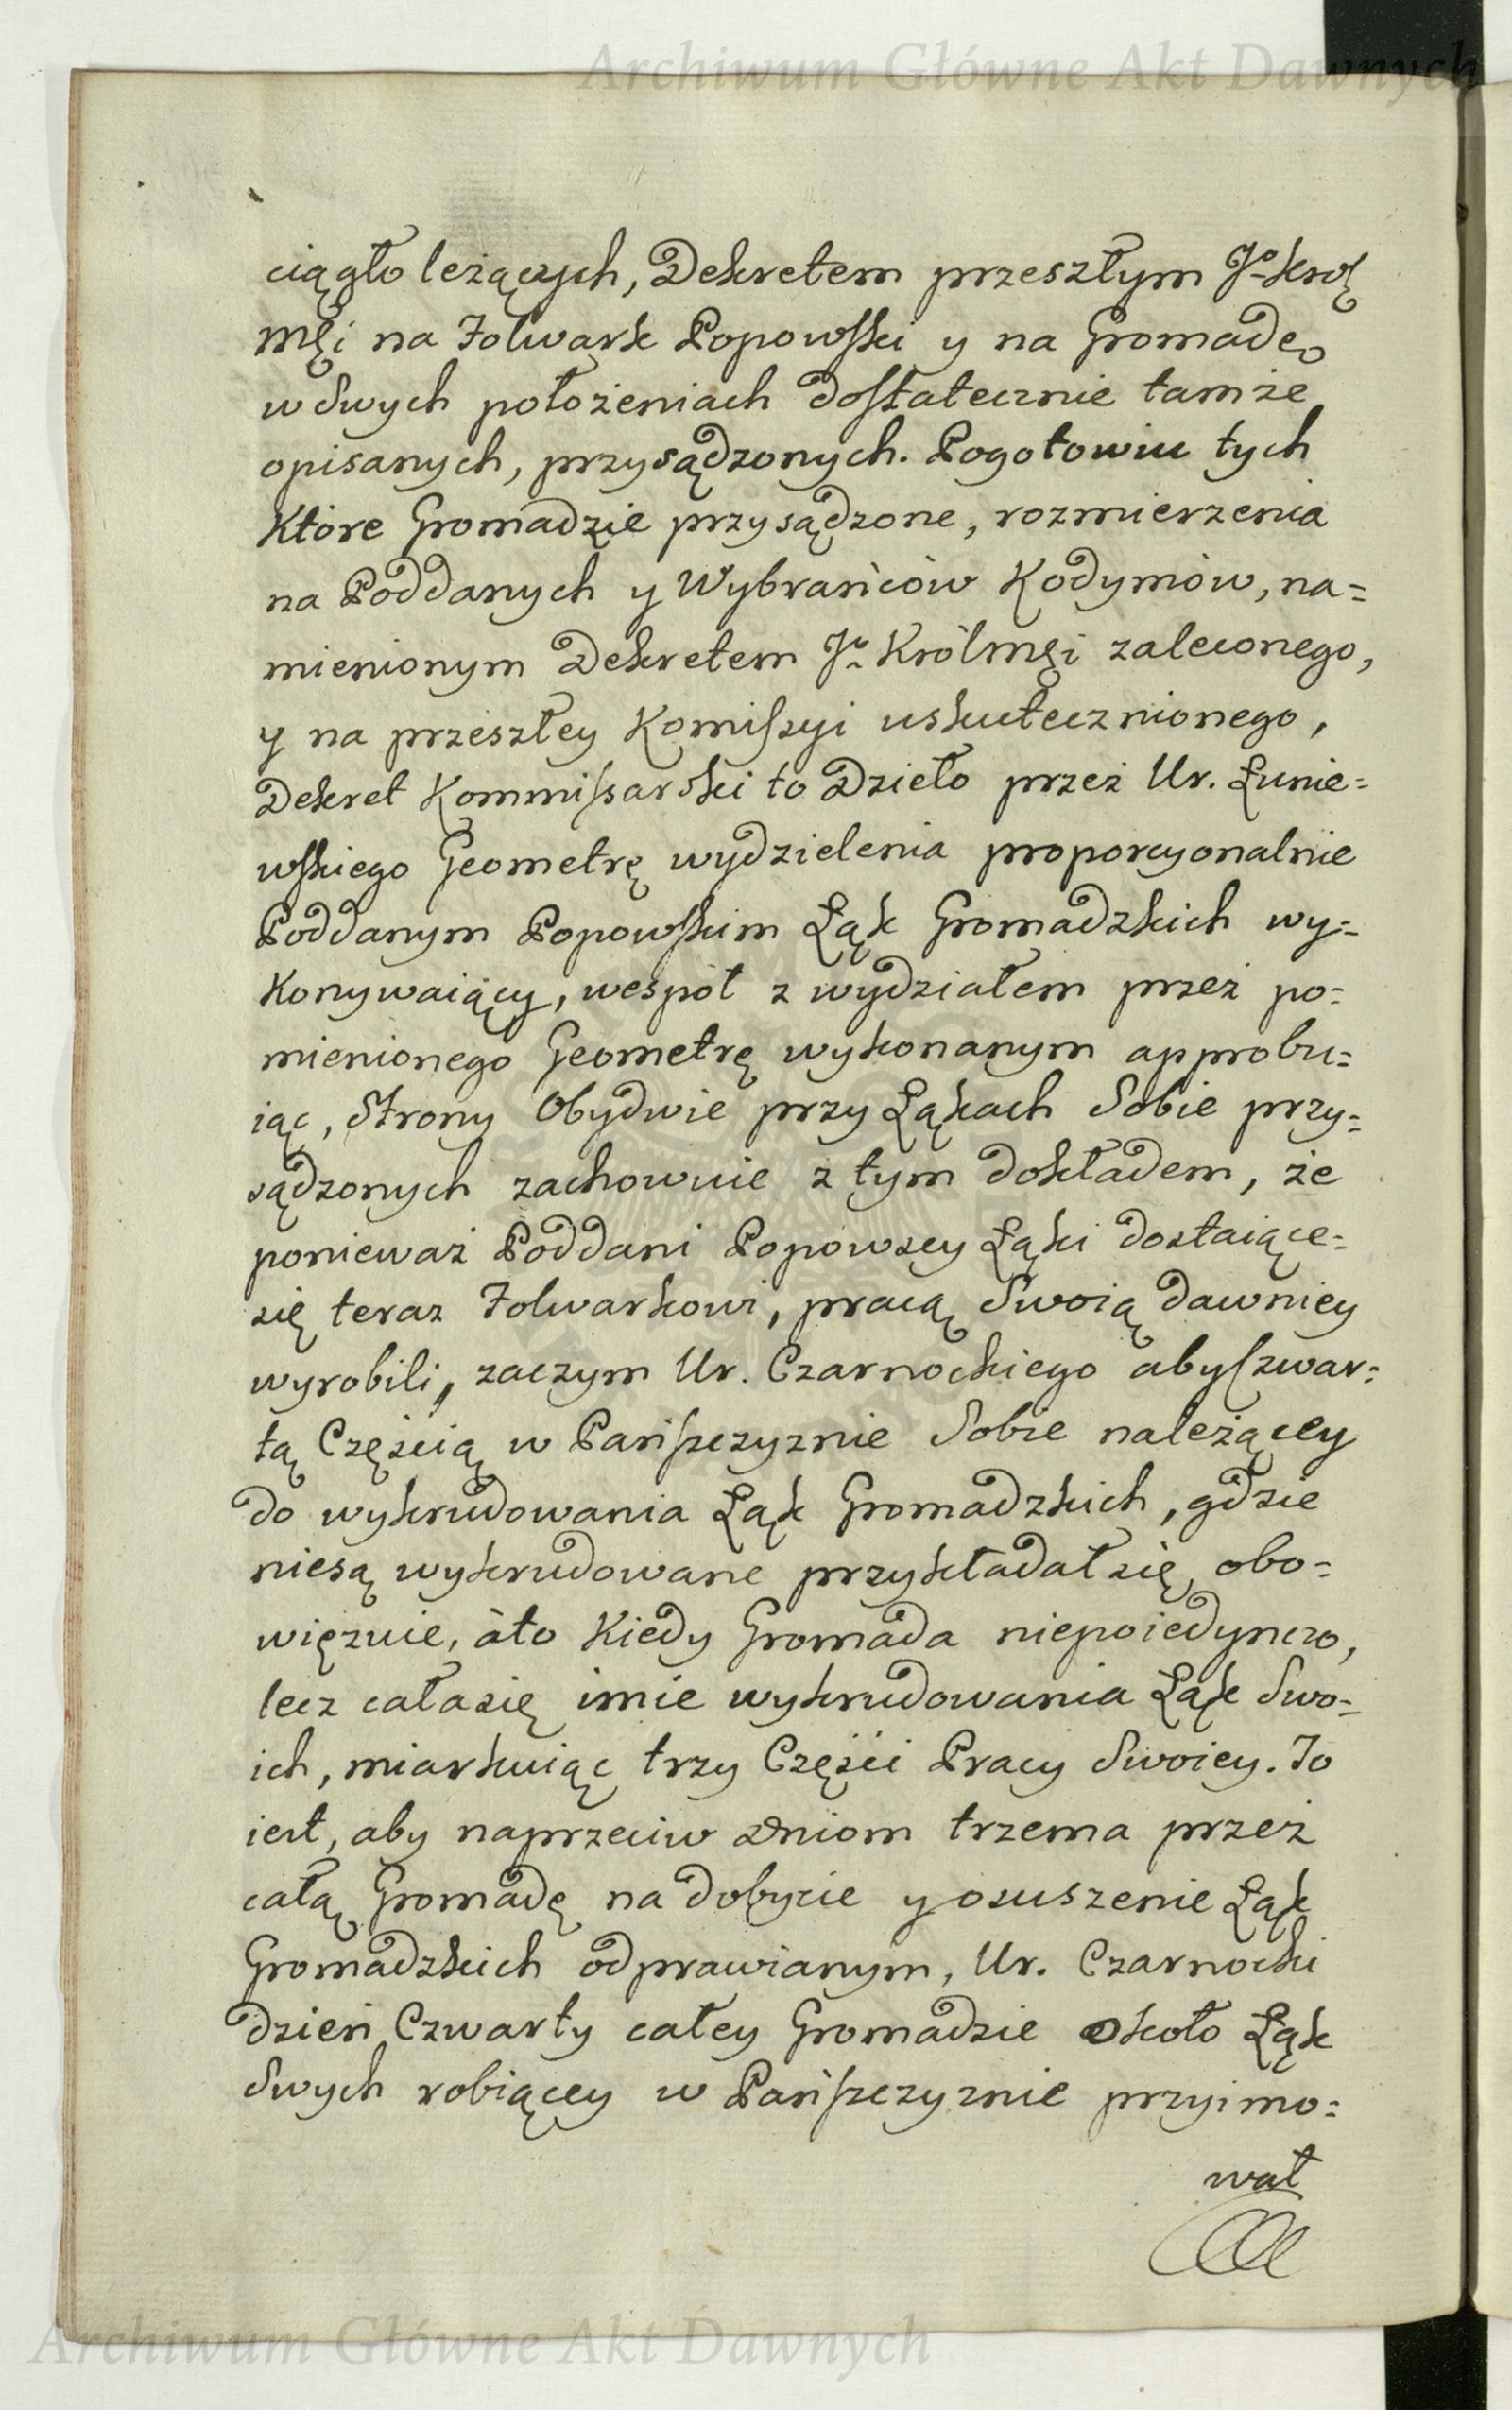 Archiwum Główne Akt Dawnych
ciągło leżących, Dekretem przeszłym Jo Krol
Męi na Folwark Popowski y na Gromadę
w swych położeniach dostatecznie tamże
opisanych, przysądzonych. Pogotowiu tych
które Gromadzie przysądzone, rozmierzenia
na Poddanych y Wybrańców Kodymów, na=
mienionym Dekretem Jo Królmęi zaleconego,
y na przeszłey Komissyi uskutecznionego,
Dekret Kommissarski to Dzieło przez Ur. Łunie=
wskiego Geometrę wydzielenia proporcyonalnie
Poddanym Popowskim Łąk Gromadzkich wy=
konywaiący, wespół z wydziałem przez po=
mienionego Geometrę wykonanym approbu=
iąc, Strony Obydwie przy Łąkach Sobie przy=
sądzonych zachownie z tym dokładem, że
ponieważ Poddani Popowscy Łąki dostaiące=
się teraz Folwarkowi, pracą Swoią dawniey
wyrobili, zaczym Ur. Czarnockiego aby szwar=
tą Częścią w Pańszczyznie Sobie należącey
do wykrudowania Łąk Gromadzkich, gdzie
niesą wykrudowane przykładał się obo=
więzuie, áto kiedy Gromada niepoiedynczo,
lecz cała się imie wykrudowania Łąk Swo=
ich, miarkuiąc trzy Części Pracy Swoiey. To
iest, aby naprzeciw Dniom trzema przez
całą Gromadę na dobycie y osuszenie Łąk
Gromadzkich odprawianym, Ur. Czarnocki
dzień Czwarty całey Gromadzie około Łąk
Swych robiącey w Pańszczyznie przyimo=
wał
Archiwum Główne Akt Dawnych